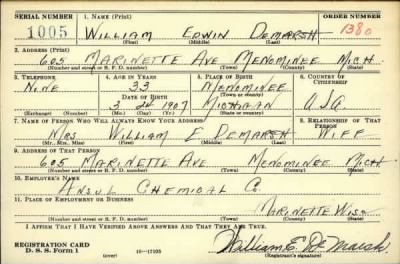 SERIAL NUMBER 1. NAME (Print) ORDER NUMBER
1005 WILLIAM EDWIN DEMARSH 1380
(First) (Middle) (Last)
2. ADDRESS (Print)
605 MARINETTE AVE MENOMINEE MICH
(Number and street or R. F. D. number) (Town) (County) (State)
3. TELEPHONE 4. AGE IN YEARS 5. PLACE OF BIRTH 6. COUNTRY OF CITIZENSHIP
NONE 33 MENOMINEE
DATE OF BIRTH (Town or county)
3 1907 MICHIGAN U.S.A
(Exchange) (Number) (Mo.) (Day) (Yr.) (State or country)
7. NAME OF PERSON WHO WILL ALWAYS KNOW YOUR ADDRESS 8. RELATIONSHIP OF THAT PERSON
MRS WILLIAM E DEMARSH WIFE
(Mr., Mrs., Miss) (First) (Middle) (Last)
9. ADDRESS OF THAT PERSON
605 MARINETTE AVE MENOMINEE MICH
(Number and street or R. F. D. number) (Town) (County) (State)
10. EMPLOYER'S NAME
ANSUL CHEMICAL CO.
11. PLACE OF EMPLOYMENT OR BUSINESS
MARINETTE WISC
(Number and street or R. F. D. number) (Town) (County) (State)
I AFFIRM THAT I HAVE VERIFIED ABOVE ANSWERS AND THAT THEY ARE TRUE.
REGISTRATION CARD William E. De Marsh
D. S. S. Form 1 (over) 16—17105 (Registrant's signature)